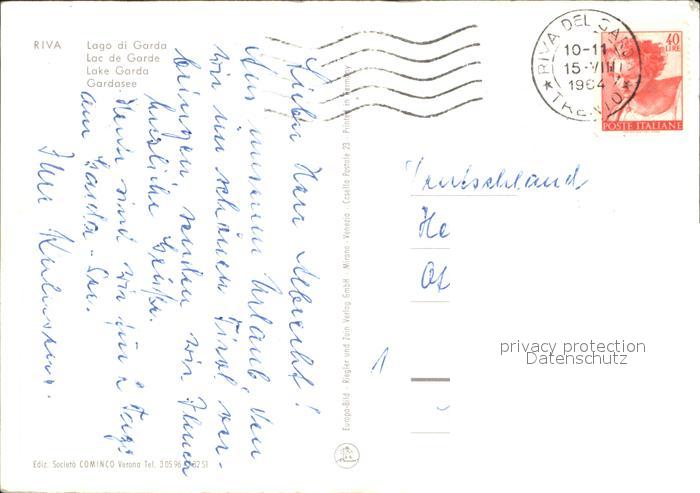 RIVA
Lago di Garda
Lac de Garde
Lake Garda
Gardasee
RIVA DEL GARDA
10-11
15·VIII
1964
TRENTO
40
LIRE
POSTE ITALIANE
Lieber Herr Albrecht!
Aus unserem Urlaub den
wir im schönen Tirol ver-
bringen, senden wir Ihnen
herzliche Grüße.
Heute sind wir für 2 Tage
am Garda-See.
Ihre
Deutschland
He
Of
1
privacy protection
Datenschutz
Europa-Bild - Riegler und Zuin Verlag GmbH - Mirano - Venezia - Casella Postale 23 Printed in Germany
Ediz. Società COMINCO Verona Tel. 30596